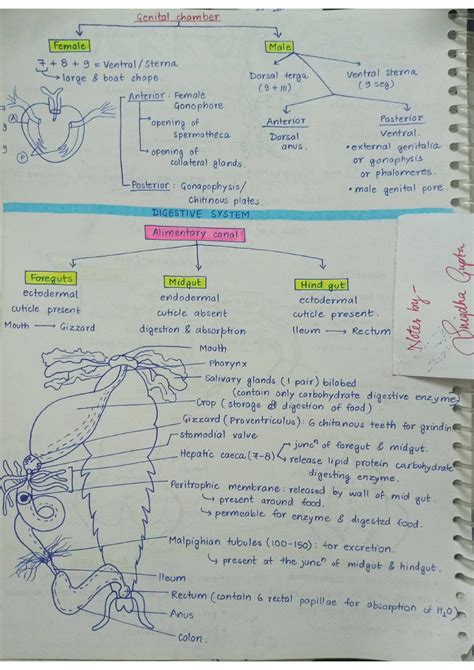 Genital chamber
Female
Male
7 + 8 + 9 = Ventral / Sterna
large & boat shape.
Dorsal terga
(9 + 10)
Ventral sterna
(9 seg)
7
8
9
A
P
Anterior : Female
Gonophore
opening of
spermatheca
opening of
collateral glands.
Posterior : Gonapophysis/
chitinous plates.
Anterior
Dorsal
anus.
Posterior
Ventral.
• external genitalia
or gonophysis
or phalomeres.
• male genital pore.
DIGESTIVE SYSTEM
Alimentary canal
Foreguts
ectodermal
cuticle present
Mouth → Gizzard
Midgut
endodermal
cuticle absent
digestion & absorption
Hind gut
ectodermal
cuticle present.
Ileum → Rectum
Notes by -
Gupta
Mouth
Pharynx
Salivary glands (1 pair) bilobed
(contain only carbohydrate digestive enzyme)
Crop (storage & digestion of food)
Gizzard (Proventriculus): 6 chitanous teeth for grindin
stomodial valve
Hepatic caeca (7-8)
juncⁿ of foregut & midgut.
release lipid protein carbohydrate
digesting enzyme.
Peritrophic membrane: released by wall of mid gut.
present around food.
permeable for enzyme & digested food.
Malpighian tubules (100-150): for excretion.
present at the juncⁿ of midgut & hindgut.
Ileum
Rectum (contain 6 rectal papillae for absorption of H₂O)
Anus
Colon.